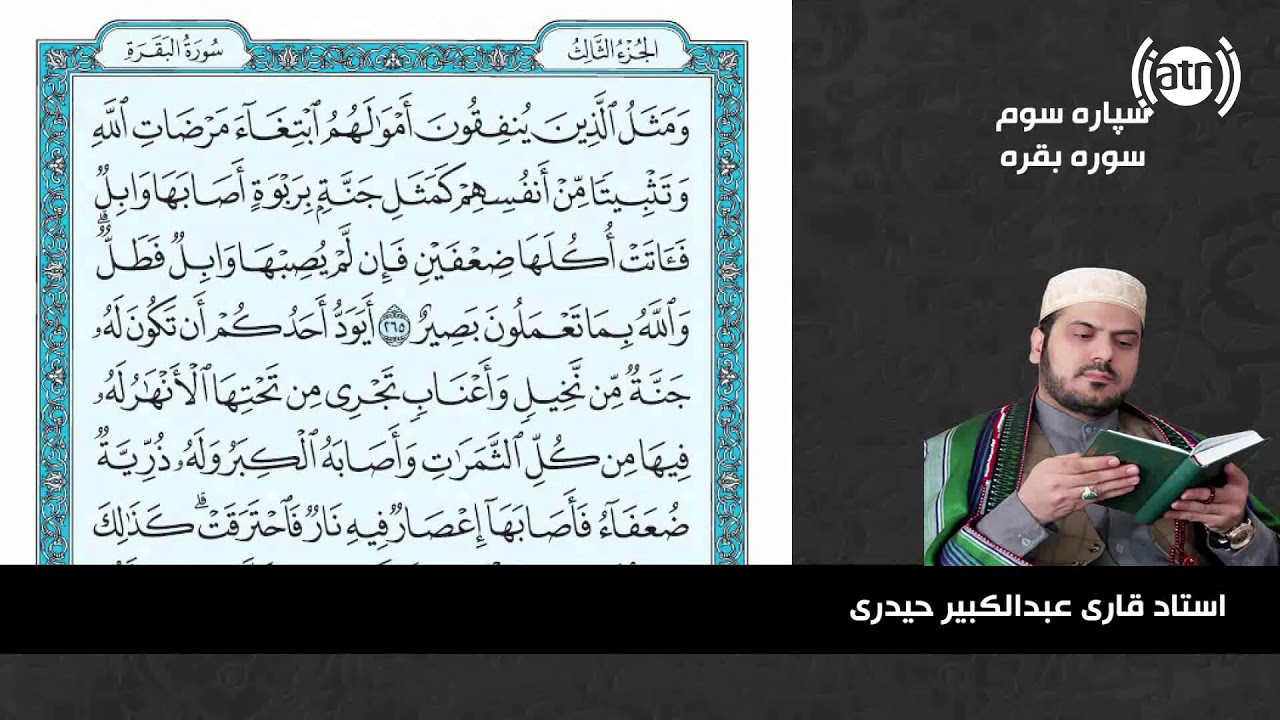 سُورَةُ البَقَرَةِ
الجُزْءُ الثَّالِثُ
وَمَثَلُ ٱلَّذِينَ يُنفِقُونَ أَمْوَٰلَهُمُ ٱبْتِغَآءَ مَرْضَاتِ ٱللَّهِ
وَتَثْبِيتًا مِّنْ أَنفُسِهِمْ كَمَثَلِ جَنَّةٍۭ بِرَبْوَةٍ أَصَابَهَا وَابِلٌ
فَـَٔاتَتْ أُكُلَهَا ضِعْفَيْنِ فَإِن لَّمْ يُصِبْهَا وَابِلٌ فَطَلٌّ ۗ
وَٱللَّهُ بِمَا تَعْمَلُونَ بَصِيرٌ ٢٦٥ أَيَوَدُّ أَحَدُكُمْ أَن تَكُونَ لَهُۥ
جَنَّةٌ مِّن نَّخِيلٍ وَأَعْنَابٍ تَجْرِى مِن تَحْتِهَا ٱلْأَنْهَٰرُ لَهُۥ
فِيهَا مِن كُلِّ ٱلثَّمَرَٰتِ وَأَصَابَهُ ٱلْكِبَرُ وَلَهُۥ ذُرِّيَّةٌ
ضُعَفَآءُ فَأَصَابَهَآ إِعْصَارٌ فِيهِ نَارٌ فَٱحْتَرَقَتْ ۗ كَذَٰلِكَ
atn
سپاره سوم
سوره بقره
استاد قاری عبدالکبیر حیدری